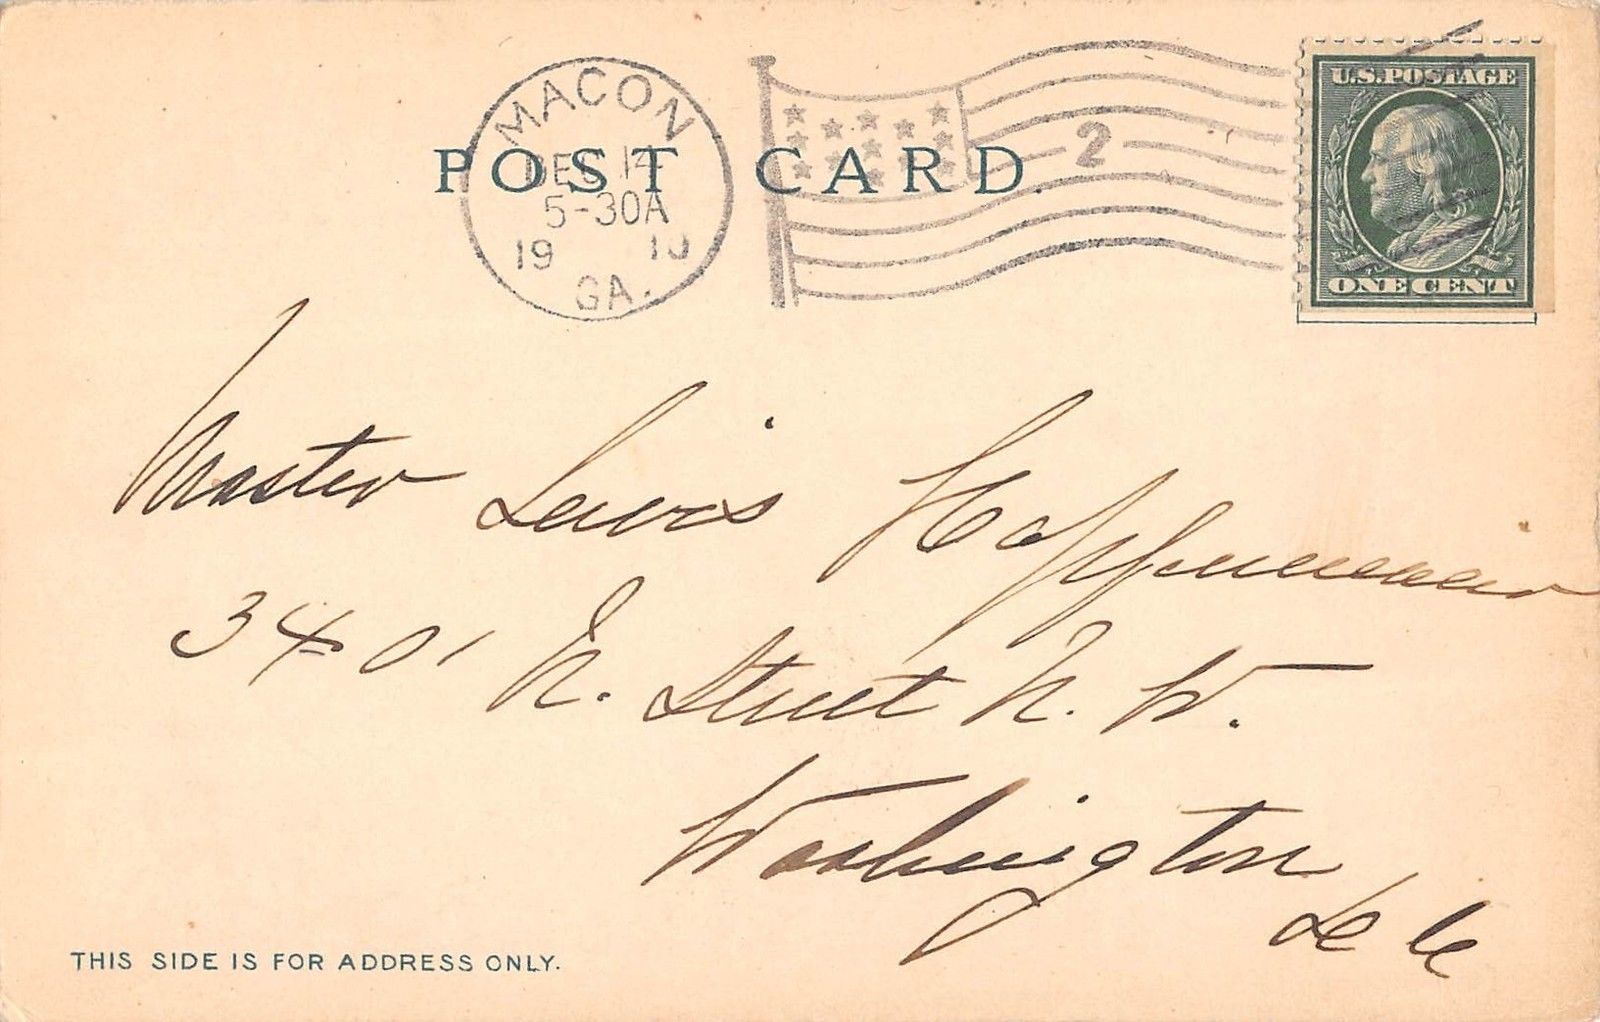 MACON
DEC 14
5-30A
19 10
GA.
2
U.S. POSTAGE
ONE CENT
POST CARD.
Master Lewis
3401 N. Street N. W.
Washington
D C
THIS SIDE IS FOR ADDRESS ONLY.